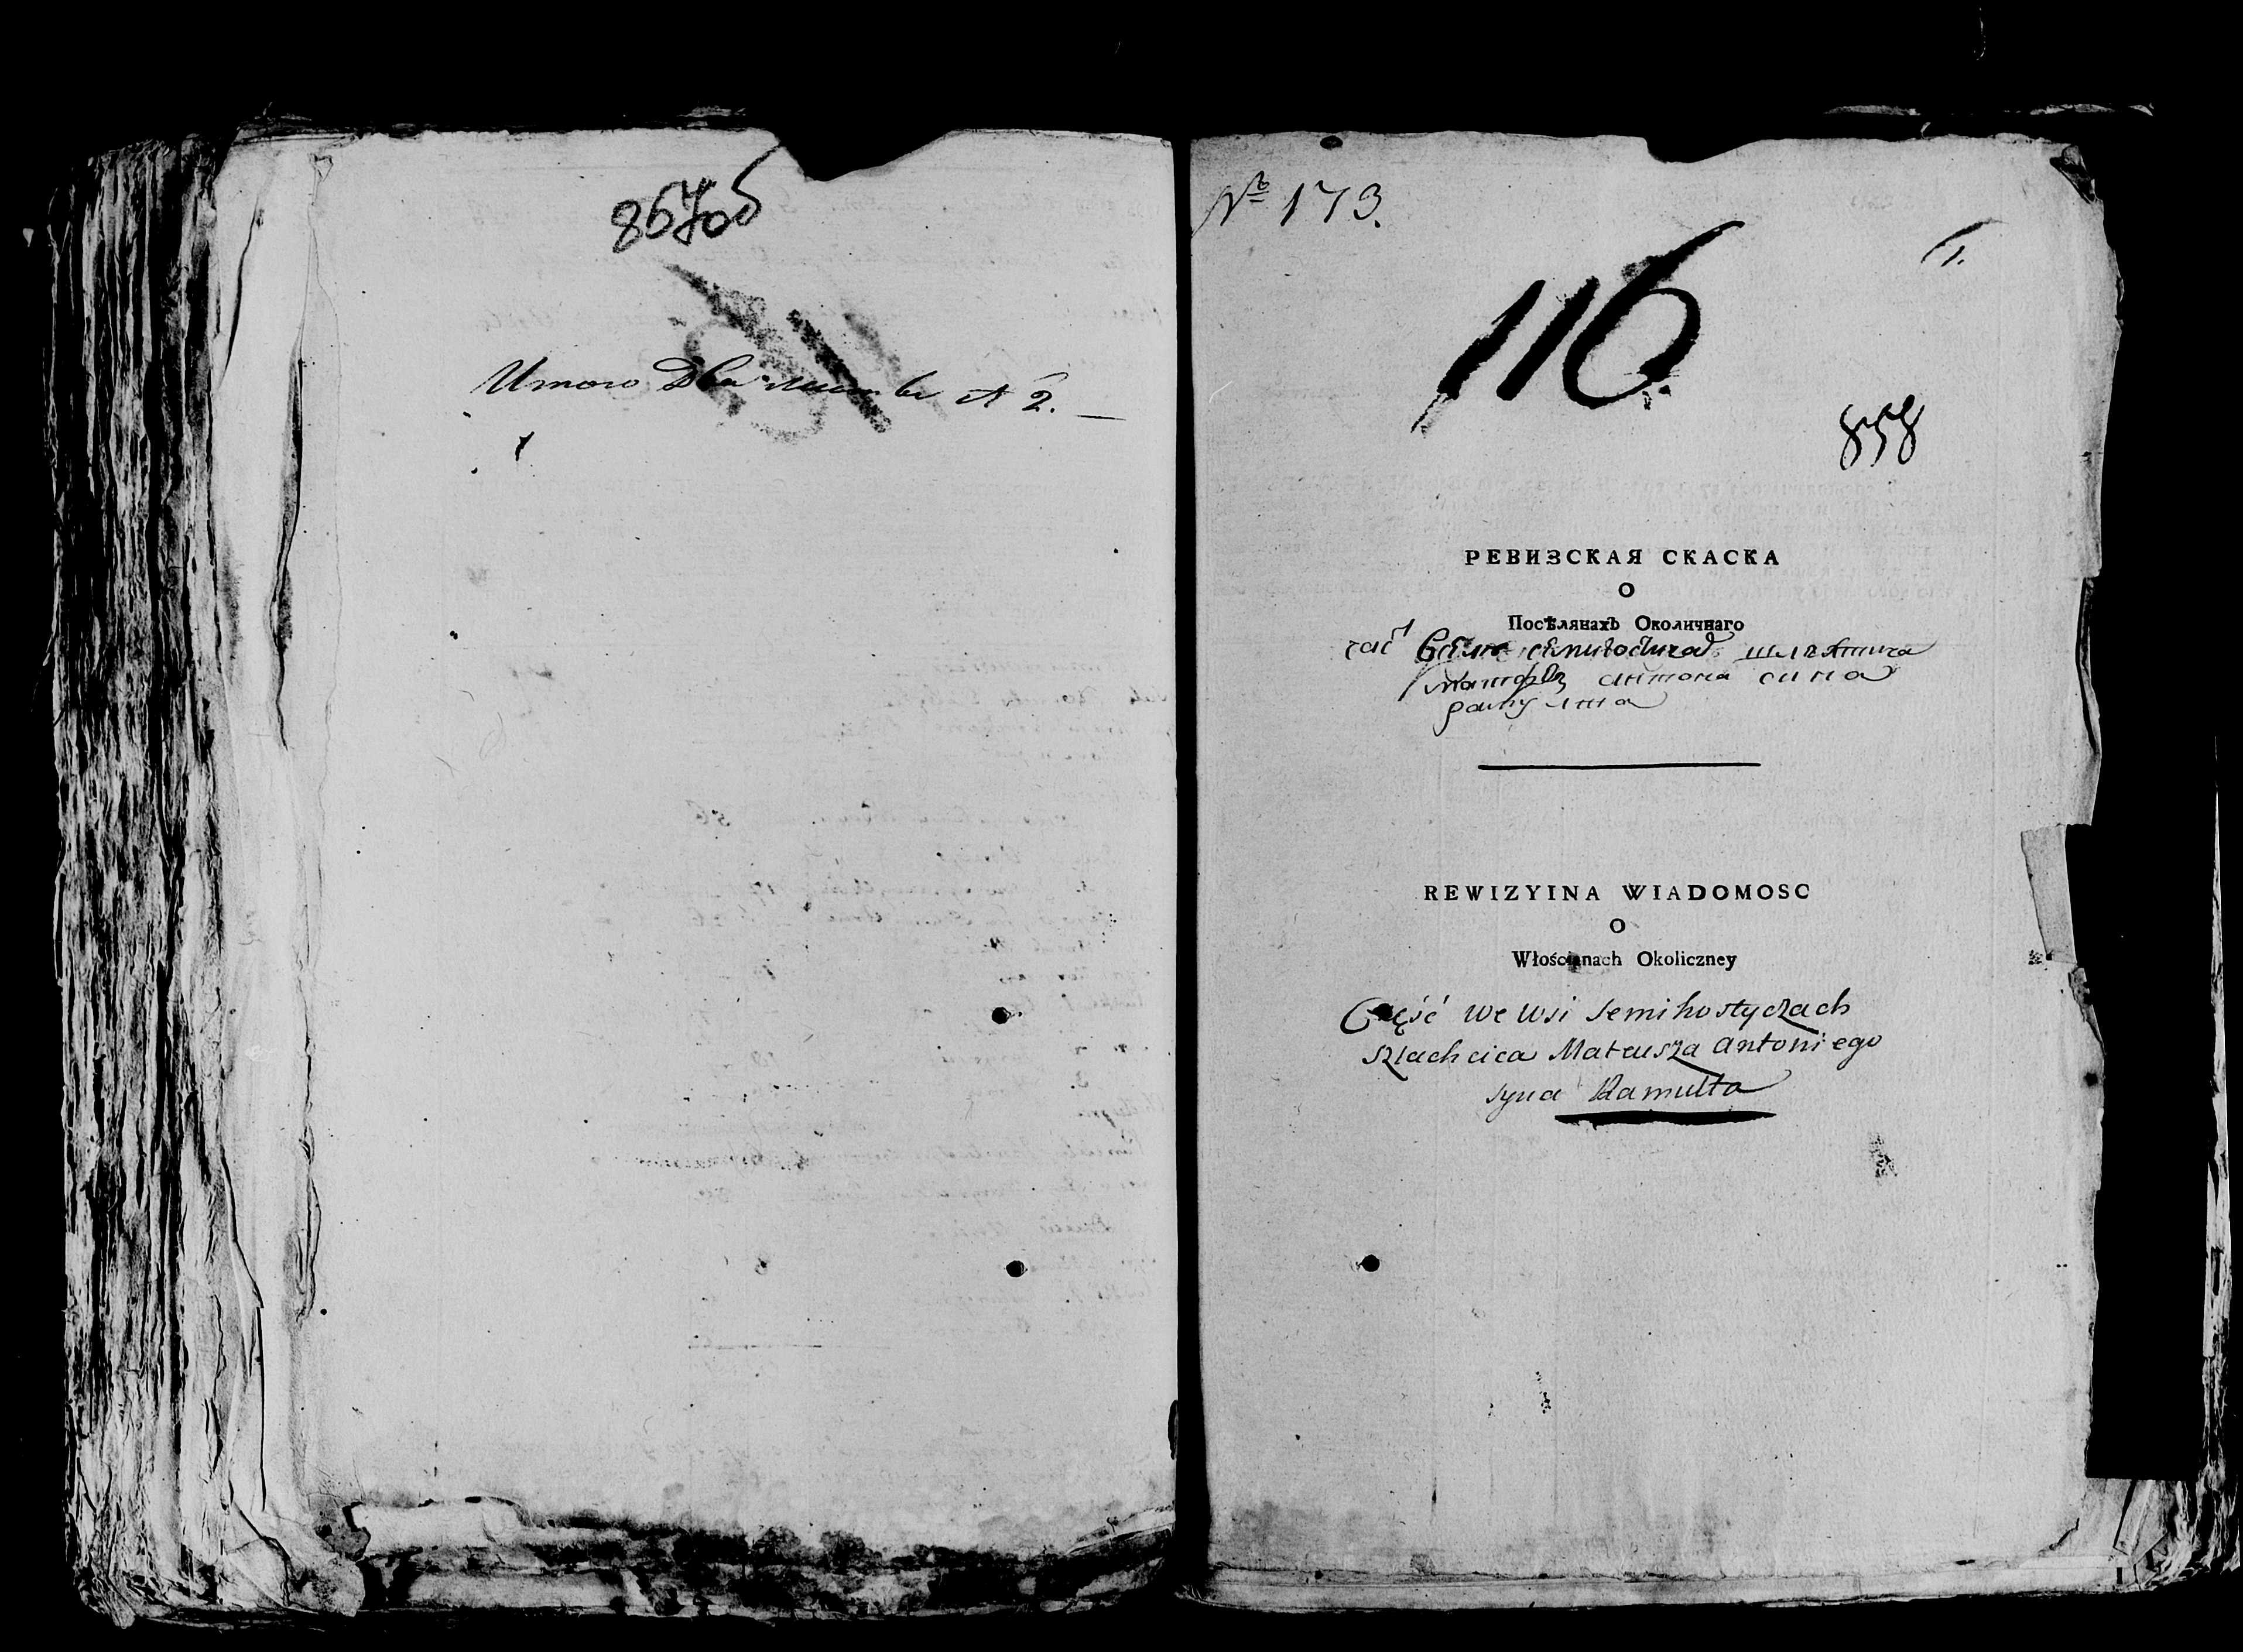 857об
Итого два листа № 2. —
№ 173.
1.
116.
858
РЕВИЗСКАЯ СКАСКА
О
Посѣлянахъ Околичнаго
шляхтича
антона сина
рамулта
REWIZYINA WIADOMOSC
O
Włościanach Okoliczney
Część we wsi Semihostyczach
szlachcica Mateusza Antoniego
syna Ramułta